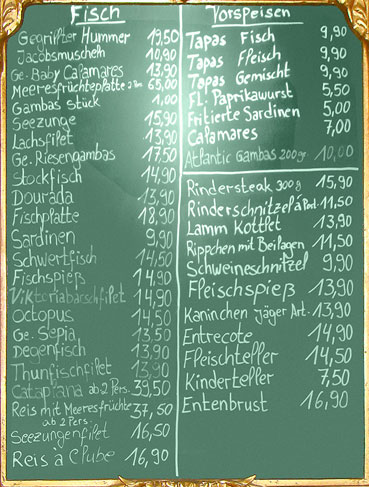 Fisch
Gegrillter Hummer 19,50
Jacobsmuscheln 10,90
Ge. Baby Calamares 13,90
Meeresfrüchteplatte 2 Pers. 65,00
Gambas stück 1,00
Seezunge 15,90
Lachsfilet 13,90
Ge. Riesengambas 17,50
Stockfisch 14,90
Dourada 13,90
Fischplatte 18,90
Sardinen 9,90
Schwertfisch 14,50
Fischspieß 14,90
Viktoriabarschfilet 14,90
Octopus 14,50
Ge. Sepia 13,50
Degenfisch 13,90
Thunfischfilet 13,90
Cataplana ab 2 Pers. 39,50
Reis mit Meeresfrüchte 37,50
ab 2 Pers.
Seezungenfilet 16,50
Reis à Clube 16,90
Vorspeisen
Tapas Fisch 9,90
Tapas Fleisch 9,90
Tapas Gemischt 9,90
Fl. Paprikawurst 5,50
Fritierte Sardinen 5,00
Calamares 7,00
Atlantic Gambas 200gr 10,00
Rindersteak 300g 15,90
Rinderschnitzel à Port. 11,50
Lamm Kottlet 13,90
Rippchen mit Beilagen 11,50
Schweineschnitzel 9,90
Fleischspieß 13,90
Kaninchen jäger Art. 13,90
Entrecote 14,90
Fleischteller 14,50
Kinderteller 7,50
Entenbrust 16,90